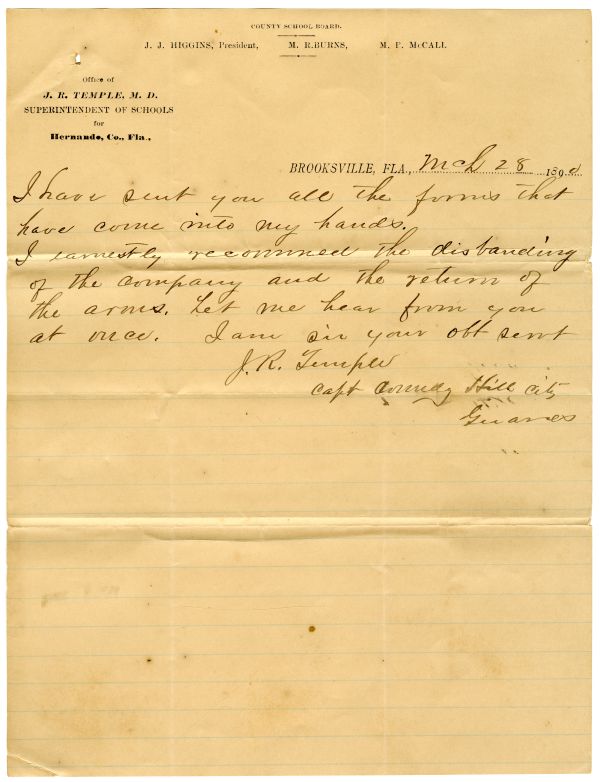 COUNTY SCHOOL BOARD.
J. J. HIGGINS, President, M. R. BURNS, M. P. McCALL
Office of
J. R. TEMPLE, M. D.
SUPERINTENDENT OF SCHOOLS
for
Hernando, Co., Fla.,
BROOKSVILLE, FLA., Mch 28 189
I have sent you all the forms that
have come into my hands.
I earnestly recommed the disbanding
of the company and the return of
the arms. Let me hear from you
at once. I am sir your obt servt
J. R. Temple
Capt Comdg Hill City
Guards